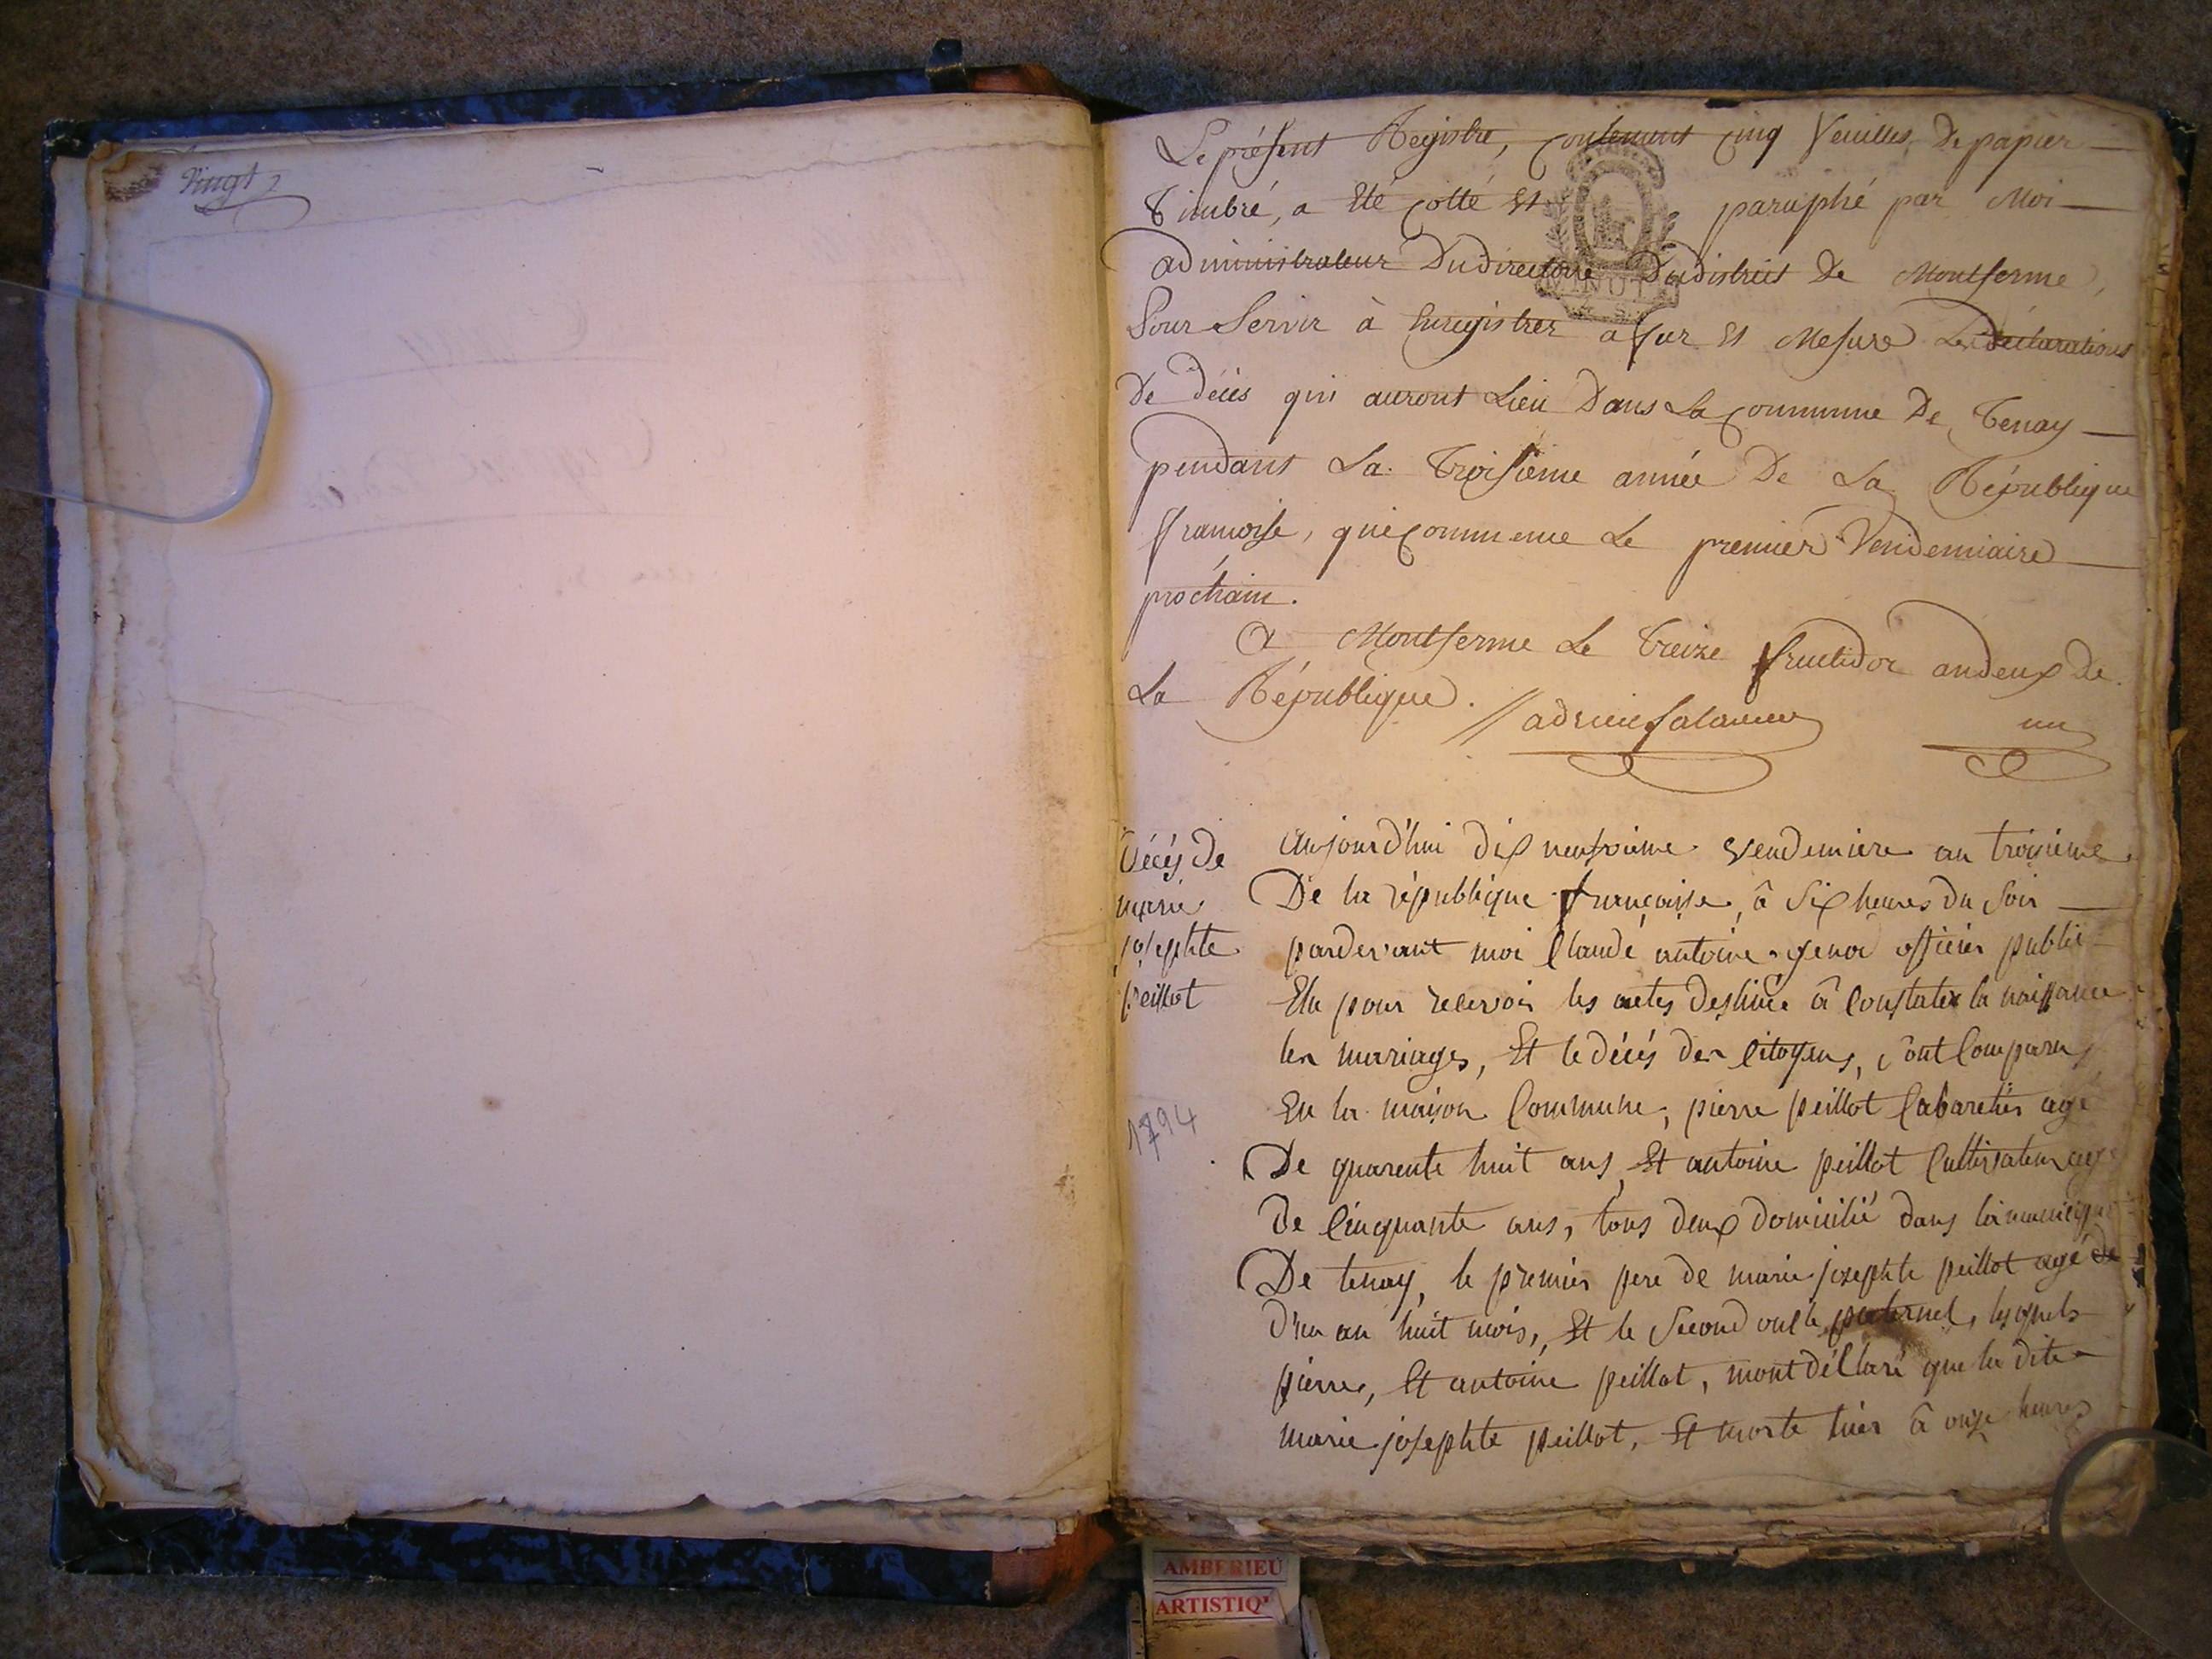 Vingt
Le présent Registre, contenant cinq feuilles de papier
Timbré, a Eté cotté Et paraphé par Moi
administrateur Du directoire Du district De Montferme,
Pour Servir à Enregistrer a fur Et Mesure Les déclarations
De décès qui auront Lieu Dans La commune De Tenay
pendant La Troisième année De La République
françoise, qui commence Le premier Vendemiaire
prochain.
A Montferme Le Treize fructidor an deux De
La République.
MINUT
un
Décés de
marie
josephte
peillot
1794
Aujourd'hui dix neufvieme vendemiere an troisieme
De la république françoise, â Six heures du Soir
pardevant moi Claude antoine officier public
Elu pour recevoir les actes destiné â Constater la naissance
les mariages, Et le décés des Citoyens, sont Comparu
En la maison Commune, pierre peillot Cabaretier agé
De quarente huit ans, Et antoine peillot Cultivateur agé
De Cinquante ans, tous deux domicilié dans la municip
De tenay, le premier pere de marie josephte peillot agé de
d'un an huit mois, Et le Second oncle paternel, lesquels
pierre, Et antoine peillot, mont déClaré que la dite
marie josephte peillot, Et morte hier â onze heures
AMBERIEU
ARTISTIQ'